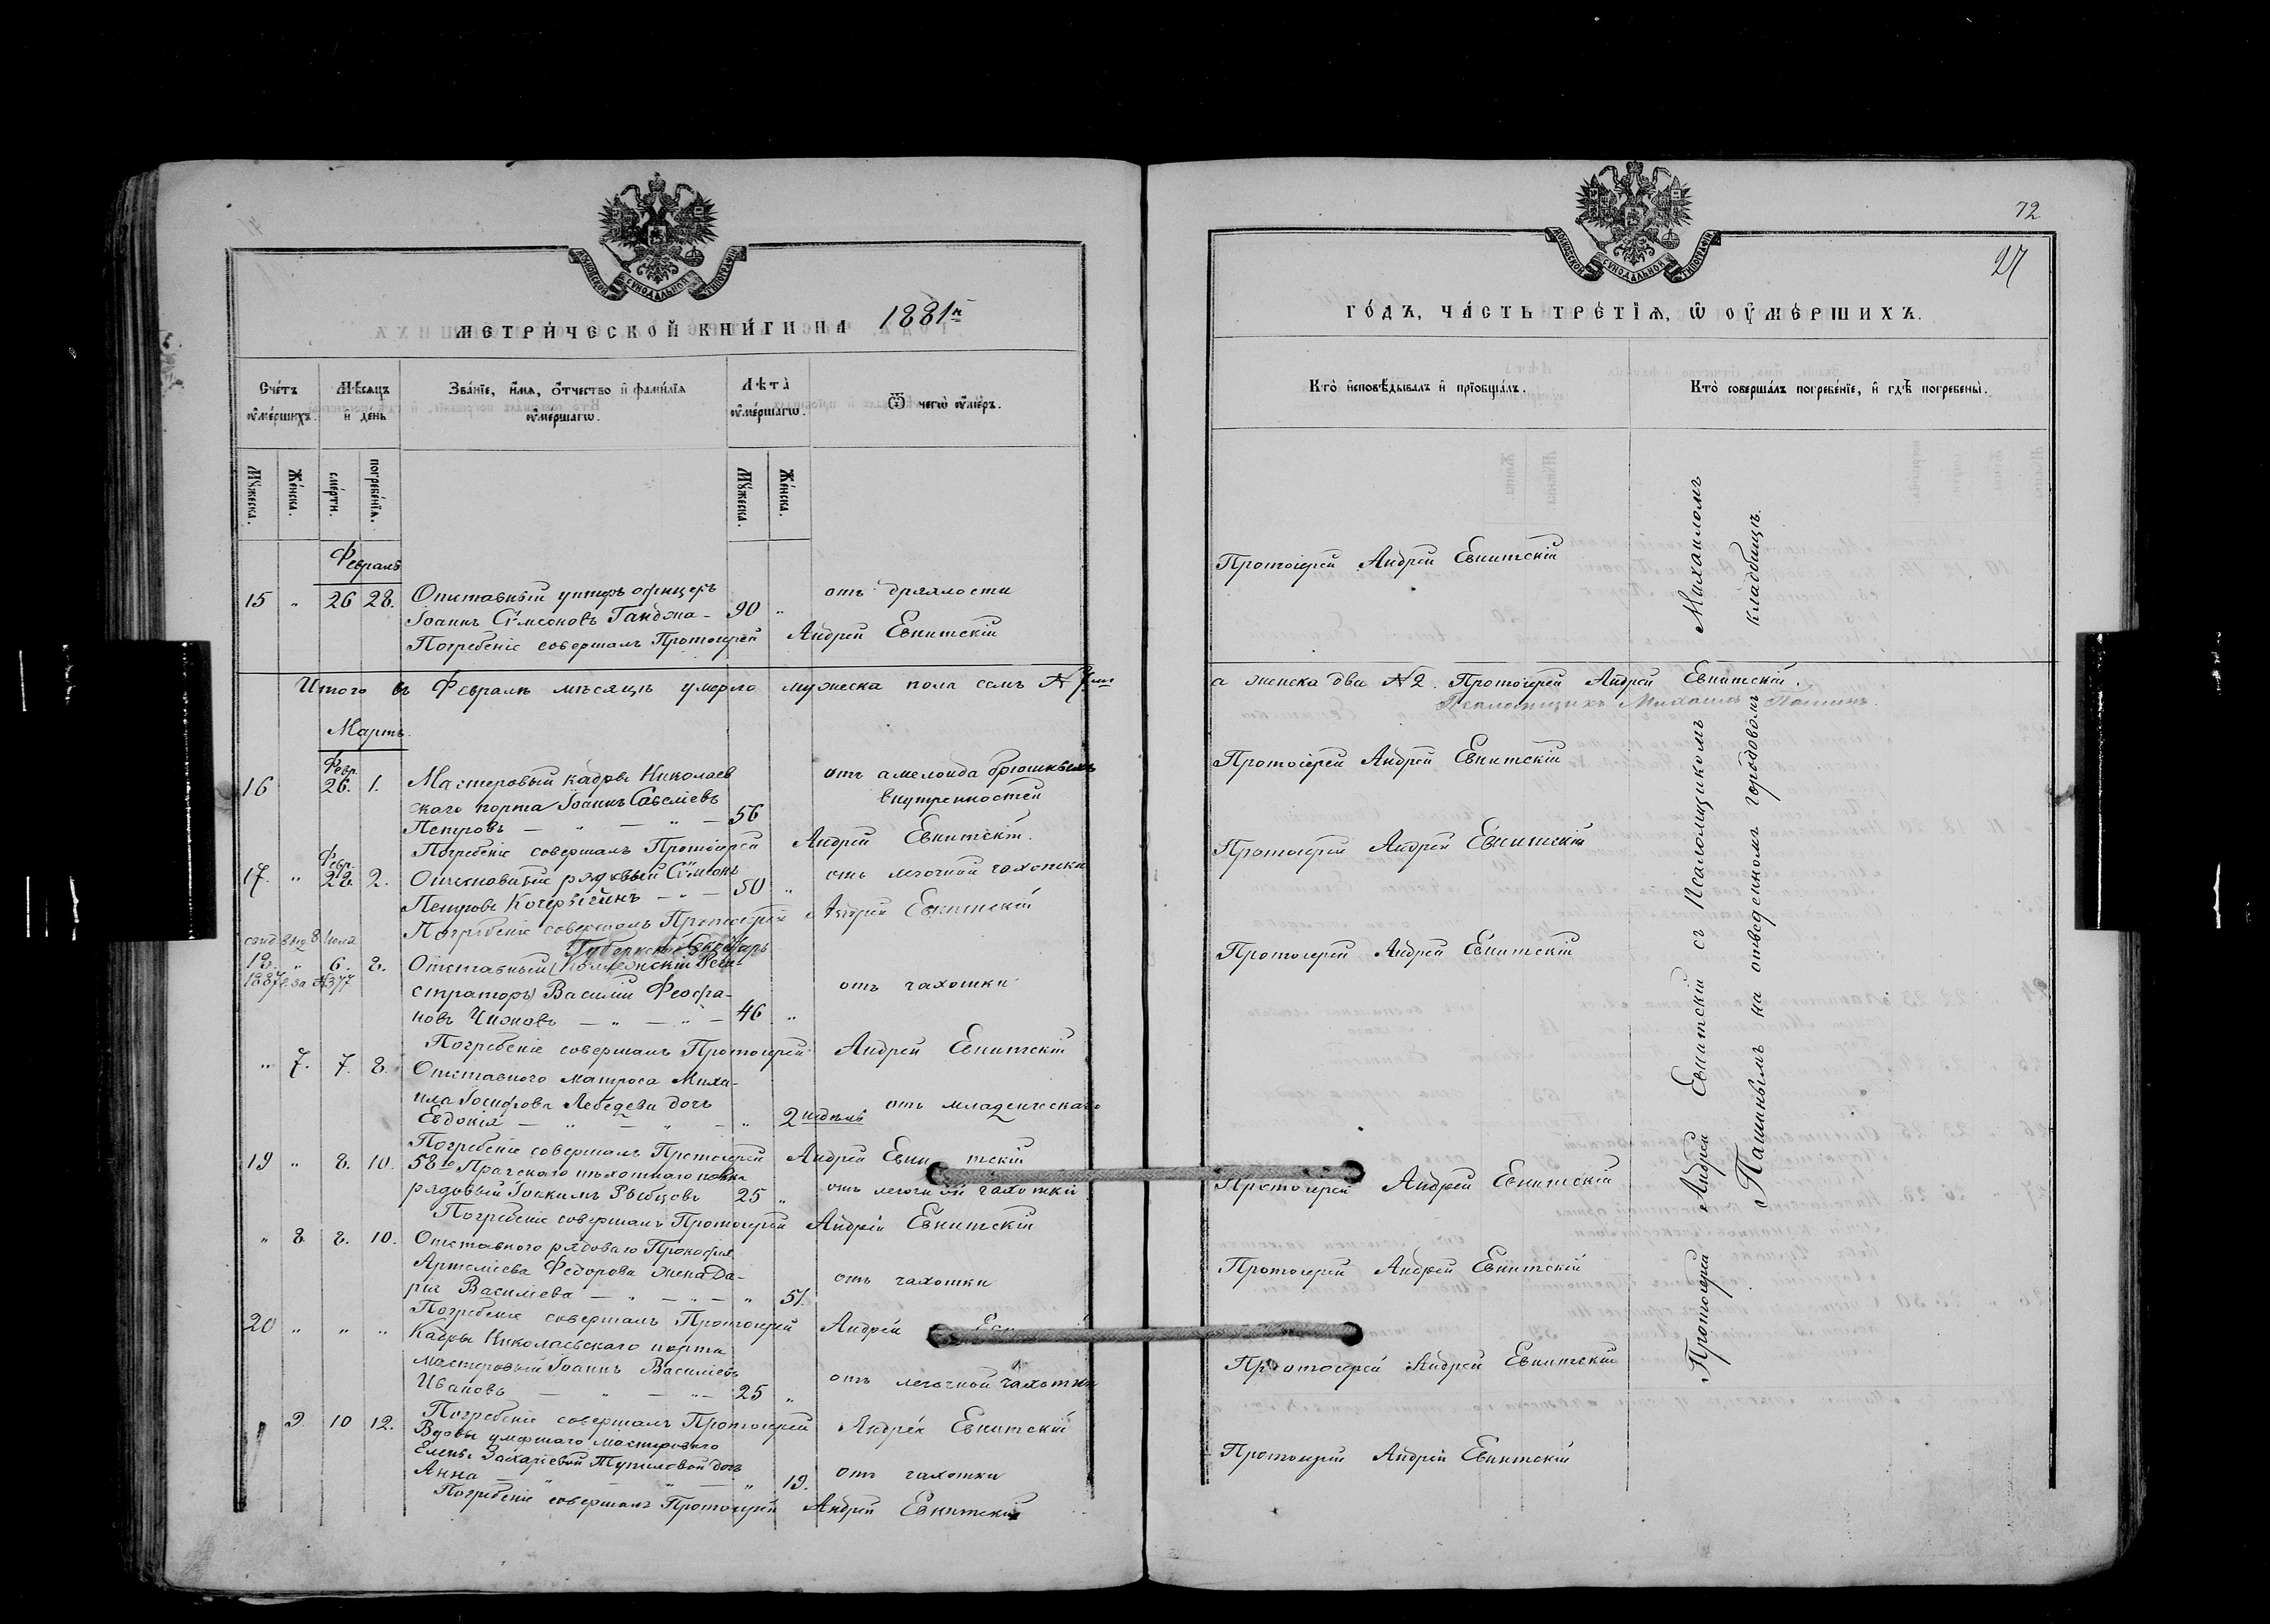 МЕТРИЧЕСКОЙ КНИГИ НА 1881й
Счетъ умершихъ.
Мѣсяцъ и день
Званіе, имя, отчество и фамилія умершагѡ.
Лѣта умершагѡ.
Ѿ чегѡ умеръ.
Мужеска.
Женска.
смерти.
погребенія.
Мужеска.
Женска.
Февраль
15 " 26 28. Отставный унтеръ офицеръ отъ дряхлости
Іоаннъ Сѵмеоновъ Ганджа - 90 "
Погребеніе совершалъ Протоіерей Андрей Евнитскій
Итого въ Февралѣ мѣсяцѣ умерло мужеска пола семь № 7мь
Мартъ.
Февр.
16 26. 1. Мастеровый кадровъ Николаев отъ амелоида брюшныхъ
скаго порта Іоаннъ Савеліевъ внутренностей
Петровъ — " — " — 56
Погребеніе совершалъ Протоіерей Андрей Евнитскій.
Февр.
17. " 28. 2. рядовый Сѵмеонъ отъ легочной чахотки
Петровъ — " — 50 "
Погребеніе совершалъ Протоіерей Андрей Евнитскій
Губернскій Секретарь
18. " 6. 8. Отставный (Коллежскій Реги-
1887 г. за №377
страторъ) Василій Феофа- отъ чахотки
новъ Чижовъ — " — " — 46 "
Погребеніе совершалъ Протоіерей Андрей Евнитскій
" 7. 7. 8. Отставного матроса Миха-
ила Іосифова Лебедева дочь отъ младенческаго
Евдокія — " — " — " 2 недѣль
Погребеніе совершалъ Протоіерей Андрей Евнитскій
19 " 8. 10. 58го Пражскаго пѣхотнаго полка
рядовый Іоакимъ Рыбцовъ 25 " отъ легочной чахотки
Погребеніе совершалъ Протоіерей Андрей Евнитскій
" 8. 8. 10. Отставного рядоваго Прокофія
Артеміева Федорова жена Да- отъ чахотки
рія Васильева — " — " — " 51.
Погребеніе совершалъ Протоіерей Андрей
20 " " " Кадры Николаевскаго порта
мастеровый Іоаннъ Васильевъ отъ легочной чахотки
Ивановъ — " — " — 25 "
Погребеніе совершалъ Протоіерей Андрей Евнитскій
9. 10 12. Вдовы умершаго мастероваго
Елены Захаріевой дочь
Анна — " — " — " 19. отъ чахотки
Погребеніе совершалъ Протоіерей Андрей Евнитскій
72
27
ГОДЪ, ЧАСТЬ ТРЕТІЯ, Ѡ УМЕРШИХЪ.
Кто исповѣдывалъ и пріобщалъ.
Кто совершалъ погребеніе, и гдѣ погребены.
Протоіерей Андрей Евнитскій
а женска два №2. Протоіерей Андрей Евнитскій.
Псаломщикъ Михаилъ Пашинъ.
Протоіерей Андрей Евнитскій
Протоіерей Андрей Евнитскій
Протоіерей Андрей Евнитскій
Протоіерей Андрей Евнитскій
Протоіерей Андрей Евнитскій
Протоіерей Андрей Евнитскій
Протоіерей Андрей Евнитскій
Протоіерей Андрей Евнитскій съ Псаломщикомъ Михаиломъ
Пашинымъ на отведенномъ городовомъ кладбищѣ.